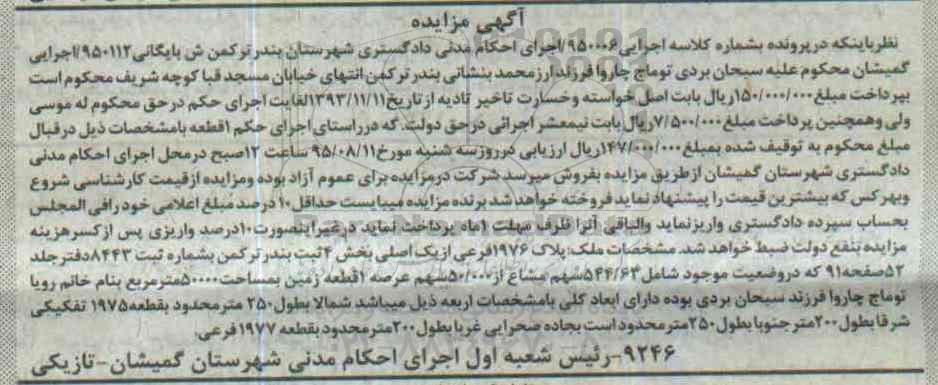 آگهی مزایده
نظرباینکه درپرونده بشماره کلاسه اجرایی۹۵۰۰۰۶/اجرای احکام مدنی دادگستری شهرستان بندرترکمن ش بایگانی۹۵۰۱۱۲/اجرایی
گمیشان محکوم علیه سبحان بردی توماج چاروا فرزند ارزمحمد بنشانی بندرترکمن انتهای خیابان مسجد قبا کوچه شریف محکوم است
بپرداخت مبلغ۱۵۰/۰۰۰/۰۰۰ریال بابت اصل خواسته وخسارت تاخیر تادیه ازتاریخ۱۳۹۳/۱۱/۱۱لغایت اجرای حکم درحق محکوم له موسی
ولی وهمچنین پرداخت مبلغ۷/۵۰۰/۰۰۰ریال بابت نیمعشر اجرائی درحق دولت. که درراستای اجرای حکم ۱قطعه بامشخصات ذیل درقبال
مبلغ محکوم به توقیف شده بمبلغ۱۴۷/۰۰۰/۰۰۰ریال ارزیابی درروزسه شنبه مورخ۹۵/۰۸/۱۱ ساعت ۱۲صبح درمحل اجرای احکام مدنی
دادگستری شهرستان گمیشان ازطریق مزایده بفروش میرسد شرکت درمزایده برای عموم آزاد بوده ومزایده ازقیمت کارشناسی شروع
وبهرکس که بیشترین قیمت را پیشنهاد نماید فروخته خواهد شد برنده مزایده میبایست حداقل ۱۰درصد مبلغ اعلامی خود رافی المجلس
بحساب سپرده دادگستری واریزنماید والباقی آنرا ظرف مهلت ۱ماه پرداخت نماید درغیراینصورت۱۰درصد واریزی پس ازکسرهزینه
مزایده بنفع دولت ضبط خواهد شد. مشخصات ملک:پلاک ۱۹۷۶فرعی ازیک اصلی بخش ۴ثبت بندرترکمن بشماره ثبت ۸۴۴۳دفترجلد
۵۲صفحه۹۱ که دروضعیت موجود شامل۵۴۴/۶۳سهم مشاع از۵۰/۰۰۰سهم عرصه ۱قطعه زمین بمساحت۵۰۰۰۰مترمربع بنام خانم رویا
توماج چاروا فرزند سبحان بردی بوده دارای ابعاد کلی بامشخصات اربعه ذیل میباشد شمالا بطول۲۵۰ مترمحدود بقطعه۱۹۷۵ تفکیکی
شرقابطول۲۰۰مترجنوبابطول۲۵۰مترمحدود است بجاده صحرایی غربابطول۲۰۰مترمحدود بقطعه۱۹۷۷فرعی.
۹۲۴۶-رئیس شعبه اول اجرای احکام مدنی شهرستان گمیشان-تازیکی